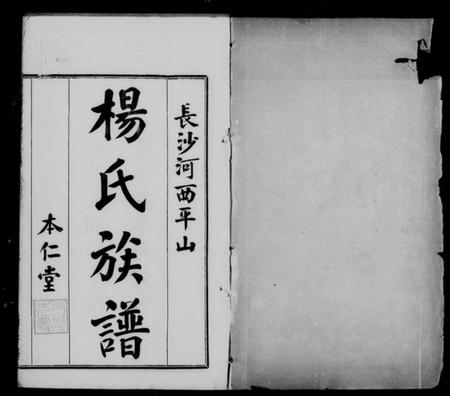 長沙河西平山
楊氏族譜
本仁堂